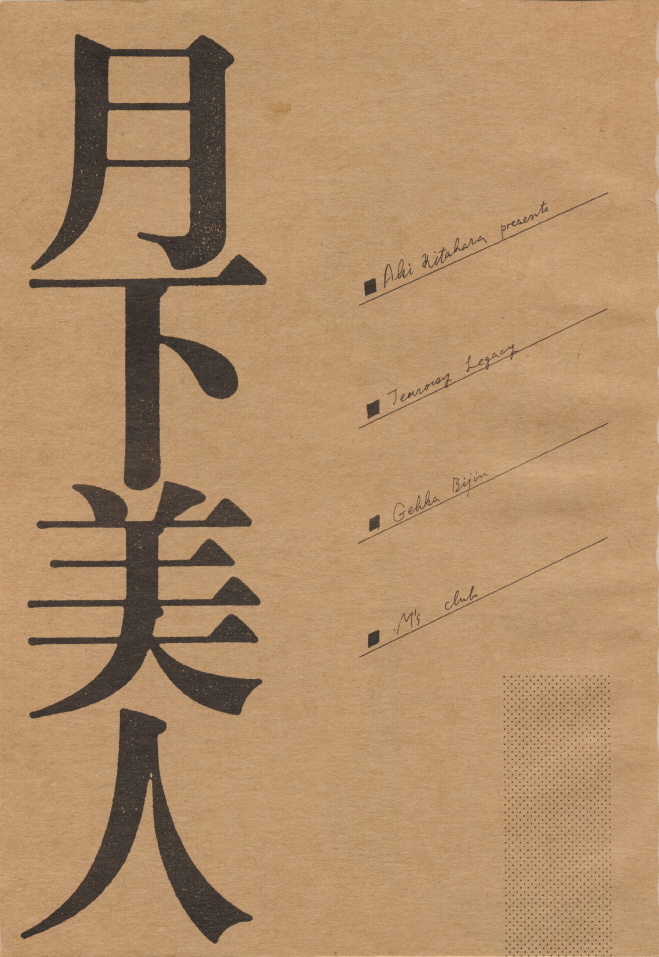 月下美人
Aki Kitahara presents
Legacy
Gekka Bijin
M's club